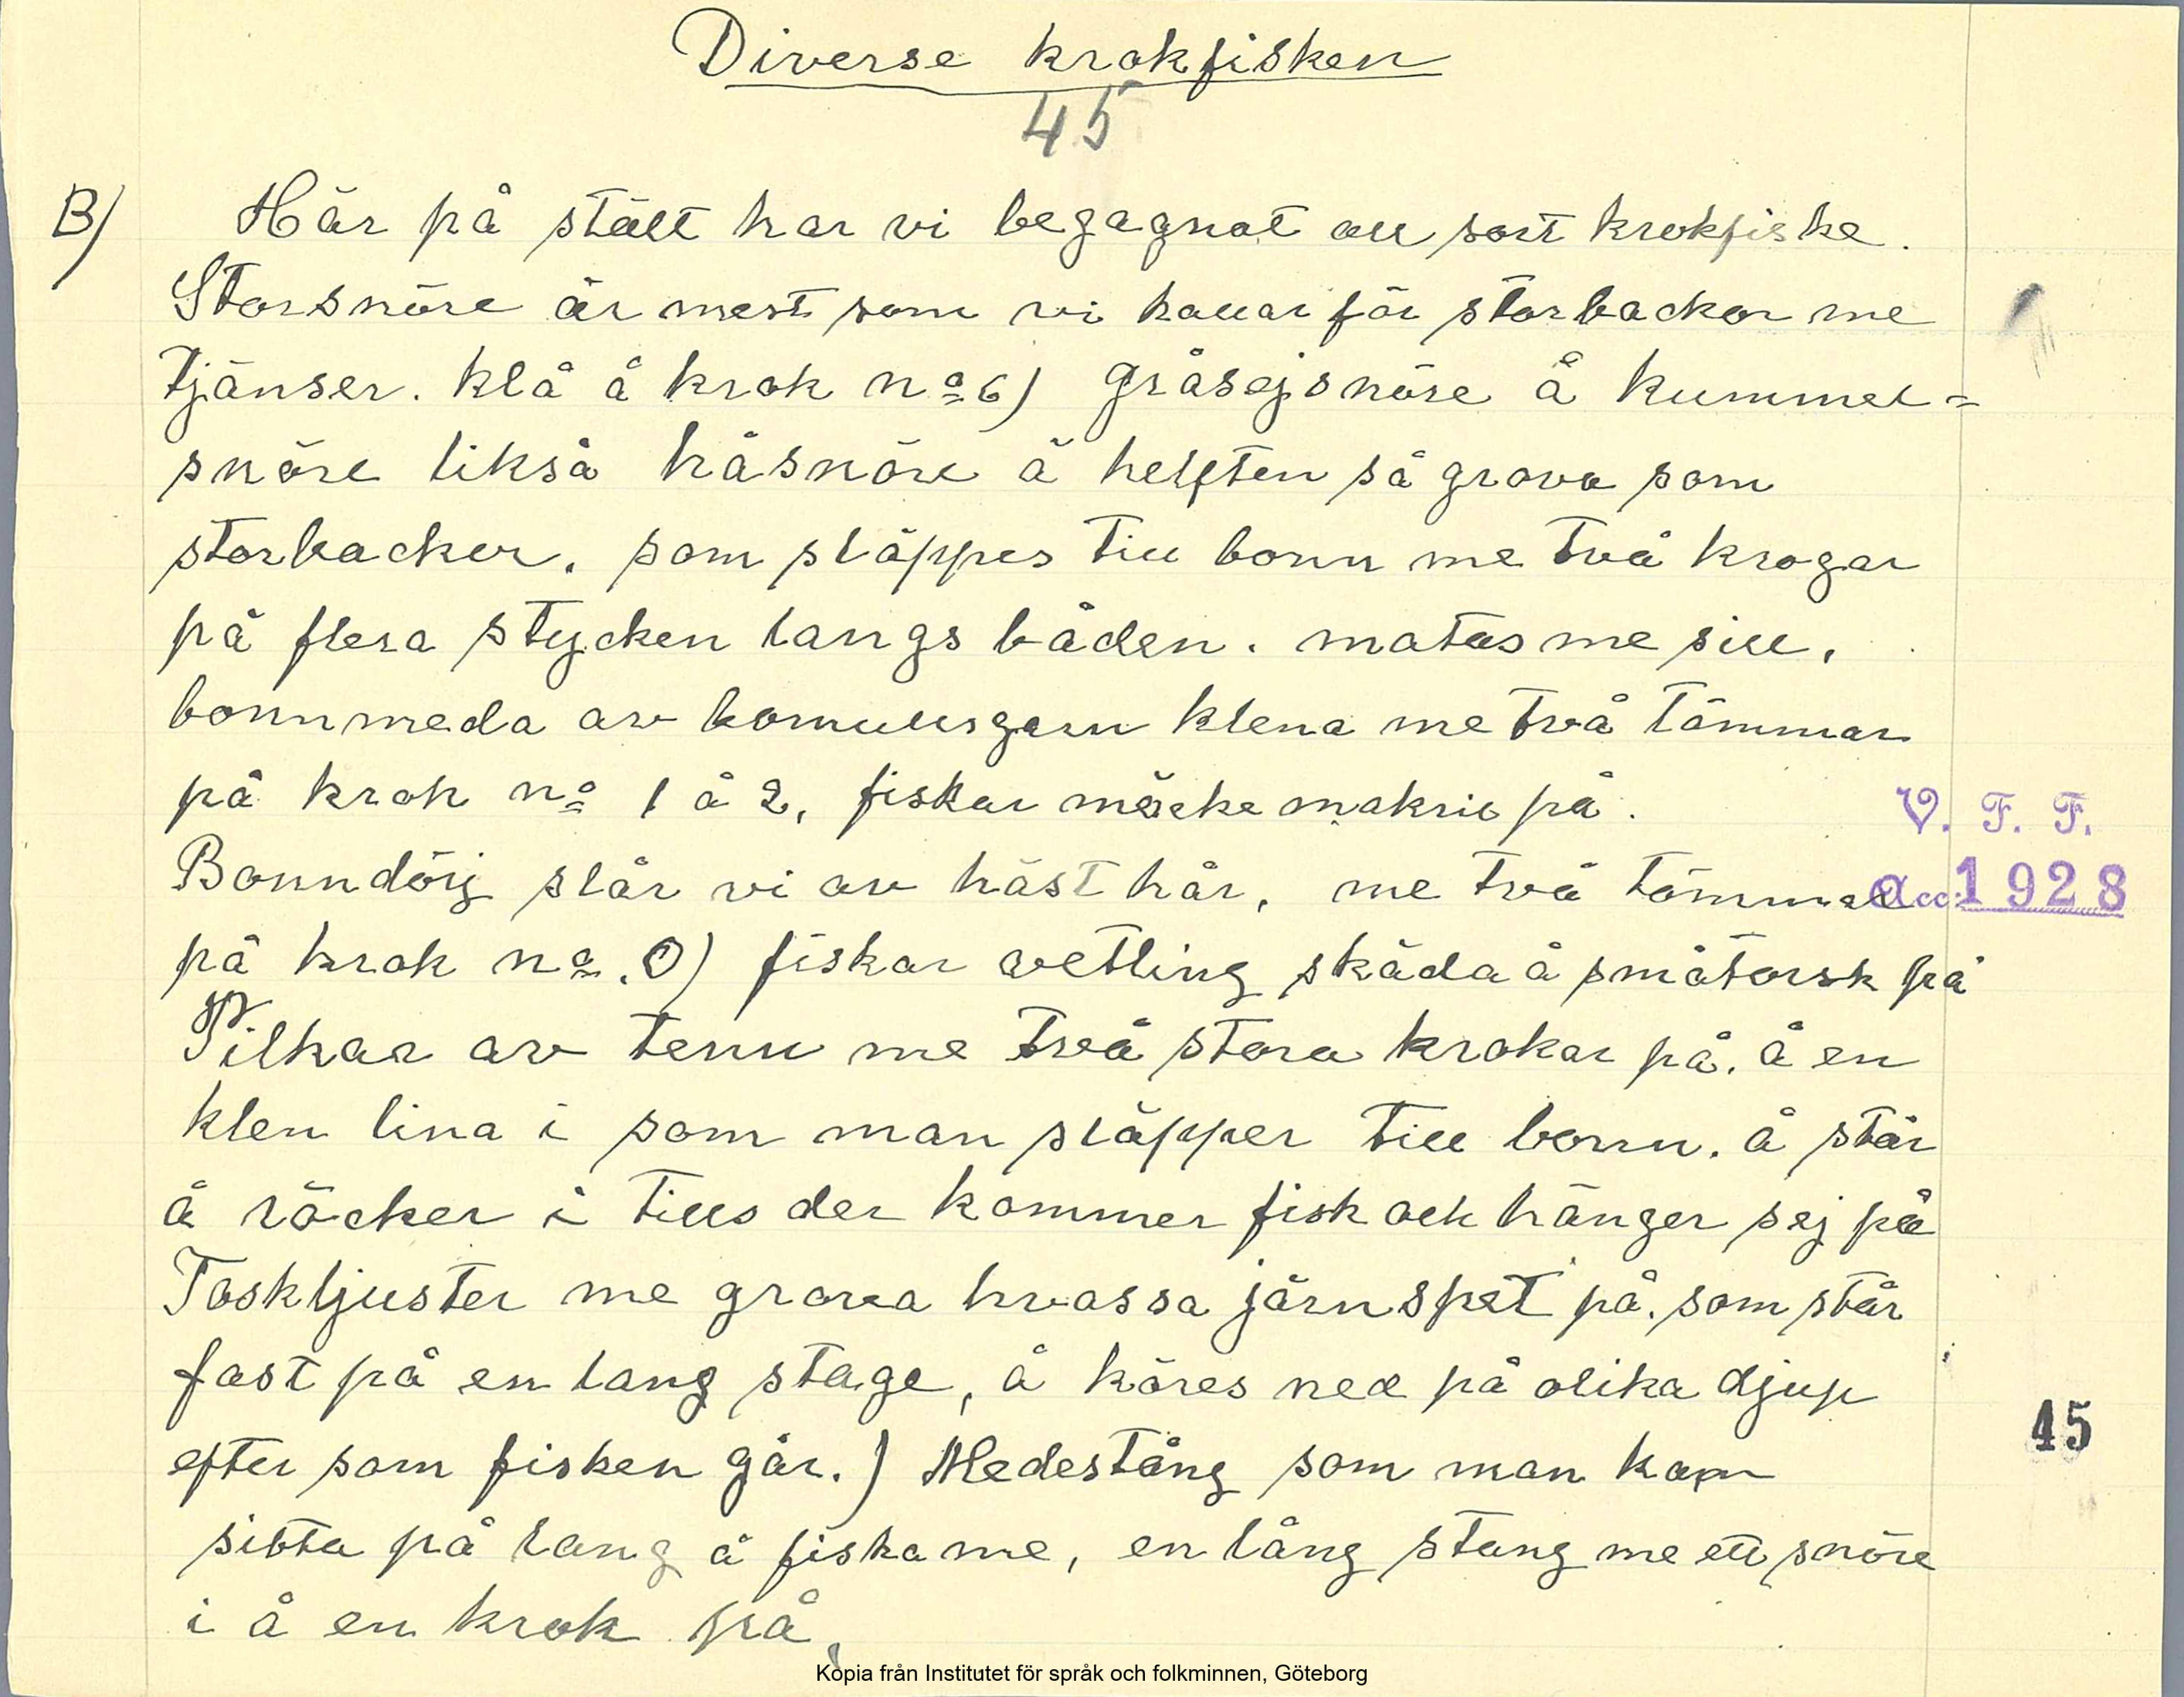 Diverse krokfisken
45
B) Här på stält har vi begagnat all sort krokfiske.
Storsnöre är mest som vi kallar för storbackor me
tjänser. klå å krok nº 6) gråsejsnöre å kummel=
snöre likså håsnöre å helften så grova som
storbacker. som släppes till bonn me två krogar
på flera stycken langs båden. matas me sill.
bonnmeda av bomullsgarn klena me två tömmar
på krok nº 1 å 2, fiskar möcke makril på.
Bonndörj slår vi av hästhår, me två tömmar
på krok nº. 0) fiskar vetling skäda å småtorsk på
Pilkar av tenn me två stora krokar på. å en
klen lina i som man släpper till bonn. å står
å röcker i tills der kommer fisk och hänger sej på
Toskljuster me grova hvassa järnspet på. som står
fast på en lang stage, å köres ned på olika djup
efter som fisken går.) Medestång som man kan
sitta på lang å fiska me, en lång stang me ett snöre
i å en krok på.
V. F. F.
Acc. 1928
45
Kopia från Institutet för språk och folkminnen, Göteborg